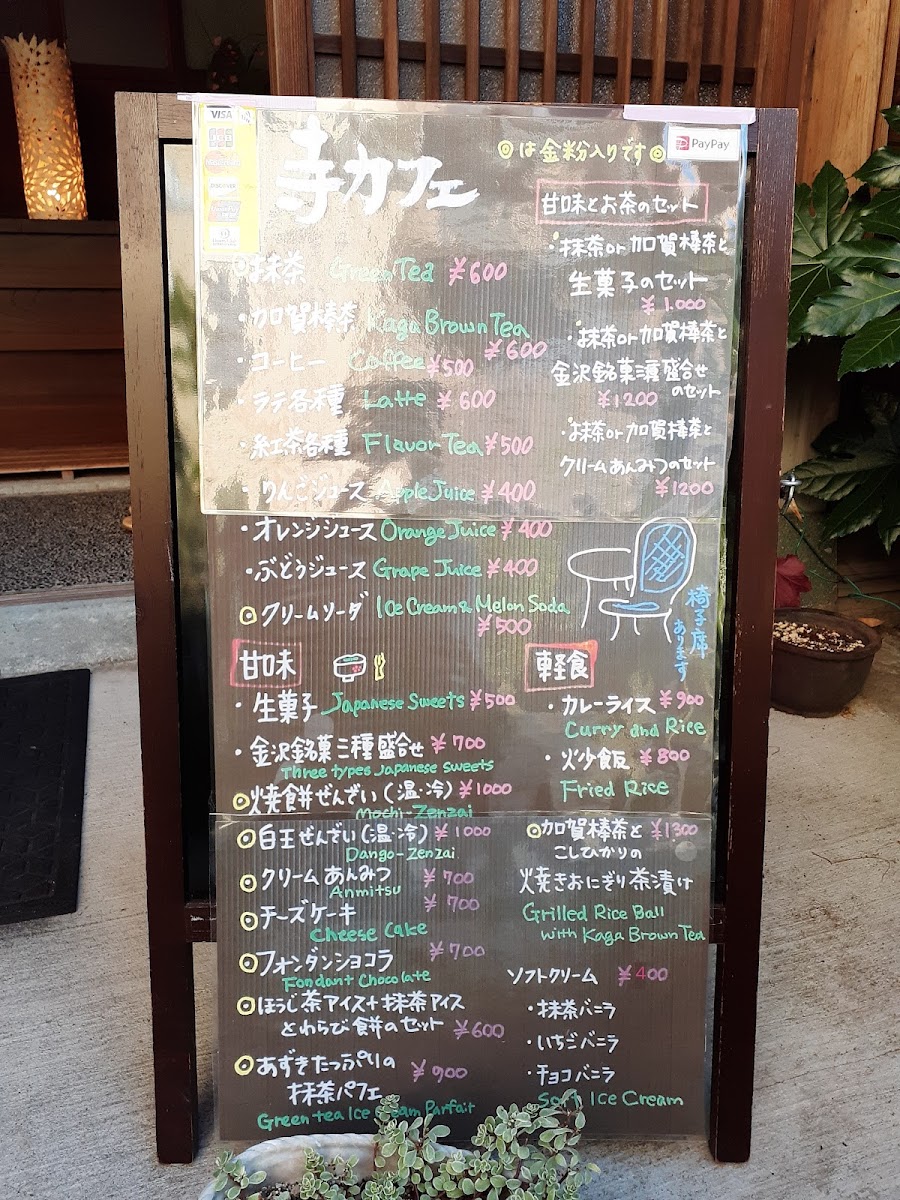 VISA
DISCOVER
寺カフェ
◎は金粉入りです◎
PayPay
・お抹茶 Green Tea ¥600
・加賀棒茶 Kaga Brown Tea
¥600
・コーヒー Coffee ¥500
・ラテ各種 Latte ¥600
・紅茶各種 Flavor Tea ¥500
・りんごジュース Apple Juice ¥400
・オレンジジュース Orange Juice ¥400
・ぶどうジュース Grape Juice ¥400
◎クリームソーダ Ice Cream & Melon Soda
¥500
甘味とお茶のセット
・お抹茶or加賀棒茶と
生菓子のセット
¥1.000
・お抹茶or加賀棒茶と
金沢銘菓三種盛合せ
のセット
¥1200
・お抹茶or加賀棒茶と
クリームあんみつのセット
¥1200
椅子席
あります
甘味
・生菓子 Japanese Sweets ¥500
・金沢銘菓三種盛合せ ¥700
Three types Japanese sweets
◎焼餅ぜんざい(温・冷) ¥1000
Mochi-Zenzai
◎白玉ぜんざい(温・冷) ¥1000
Dango-Zenzai
◎クリームあんみつ ¥700
Anmitsu
◎チーズケーキ ¥700
Cheese Cake
◎フォンダンショコラ ¥700
Fondant Chocolate
◎ほうじ茶アイス+抹茶アイス
とわらび餅のセット ¥600
◎あずきたっぷりの ¥900
抹茶パフェ
Green tea Ice Cream Parfait
軽食
・カレーライス ¥900
Curry and Rice
・炒飯 ¥800
Fried Rice
◎加賀棒茶と ¥1300
こしひかりの
焼きおにぎり茶漬け
Grilled Rice Ball
with Kaga Brown Tea
ソフトクリーム ¥400
・抹茶バニラ
・いちごバニラ
・チョコバニラ
Soft Ice Cream